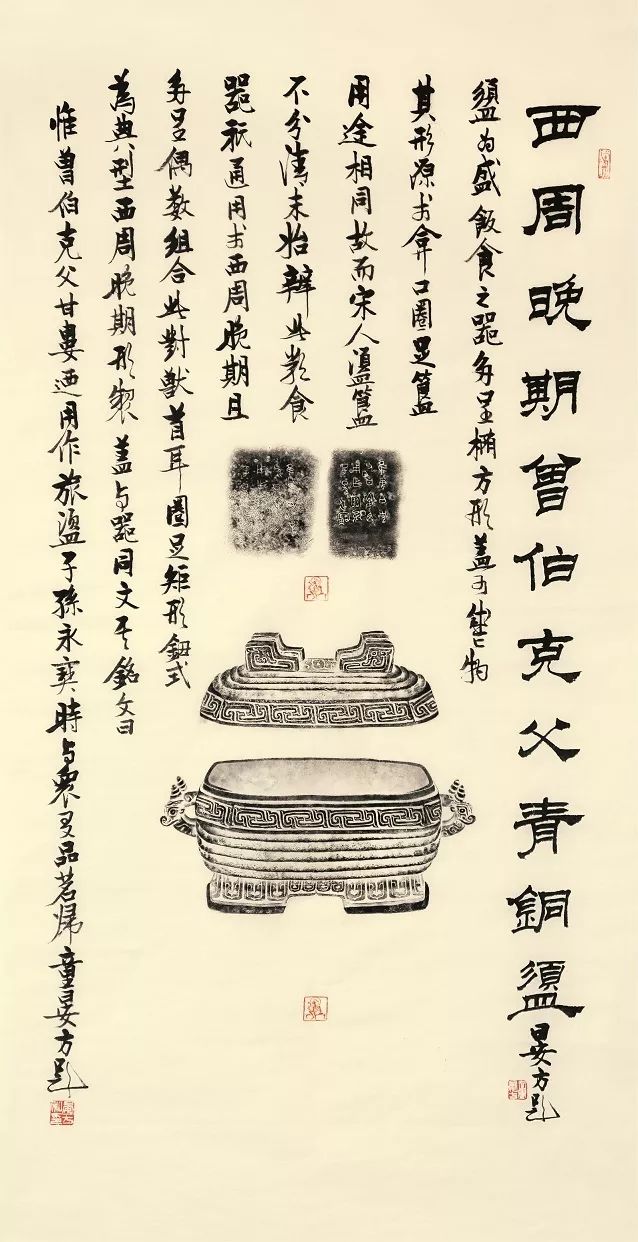 西周晚期曾伯克父青銅盨
晏方題
盨为盛飯食之器多呈橢方形蓋可盛物
其形源于弇口圈足簋
用途相同故而宋人盨簋
不分清末始辨此類食
器秖通用于西周晚期且
多呈偶数組合此對獸首耳圈足矩形鈕式
為典型西周晚期形製蓋与器同文其銘文曰
惟曾伯克父甘婁迺用作旅盨子孫永寶時与品茗歸童晏方題